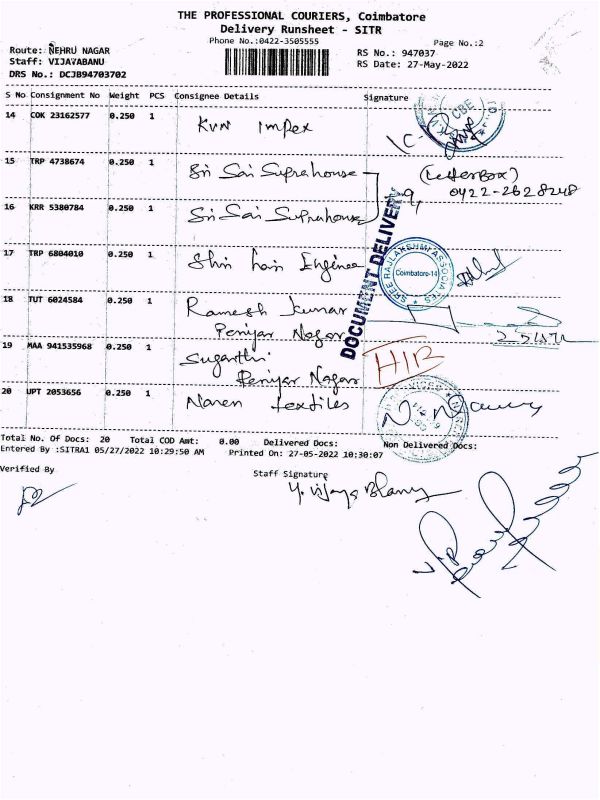 THE PROFESSIONAL COURIERS, Coimbatore
Delivery Runsheet - SITR
Phone No.:0422-3505555
Page No.:2
Route: NEHRU NAGAR
Staff: VIJAYABANU
DRS No.: DCJB94703702
RS No.: 947037
RS Date: 27-May-2022
S No Consignment No Weight PCS Consignee Details Signature
14 COK 23162577 0.250 1 KVN Impex
CBE
15 TRP 4738674 0.250 1 Sri Sai Suprahouse
(Letterbox)
0422-2628248
16 KRR 5380784 0.250 1 Sri Sai Suprahouse
DOCUMENT DELIVERY
17 TRP 6804010 0.250 1 Shri hari Enginee
SREE RAJLAKSHMI ASSOCIATES
Coimbatore-14
18 TUT 6024584 0.250 1 Ramesh Kumar
Periyar Nagar
19 MAA 941535968 0.250 1 Suganthi
Periyar Nagar
H/R
20 UPT 2053656 0.250 1 Naren textiles
Total No. Of Docs: 20 Total COD Amt: 0.00 Delivered Docs: Non Delivered Docs:
Entered By :SITRA1 05/27/2022 10:29:50 AM Printed On: 27-05-2022 10:30:07
Verified By
Staff Signature